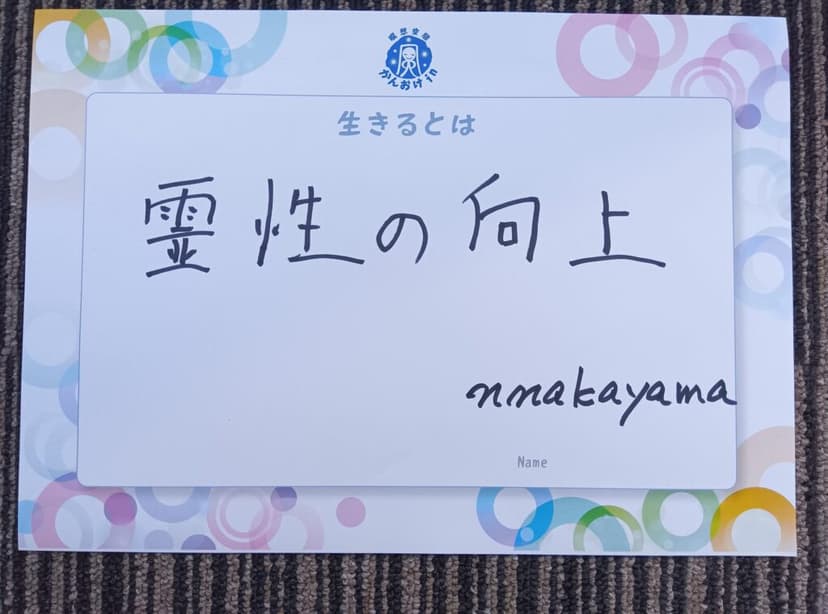 瞑想空間
かんおけin
生きるとは
霊性の向上
nnakayama
Name